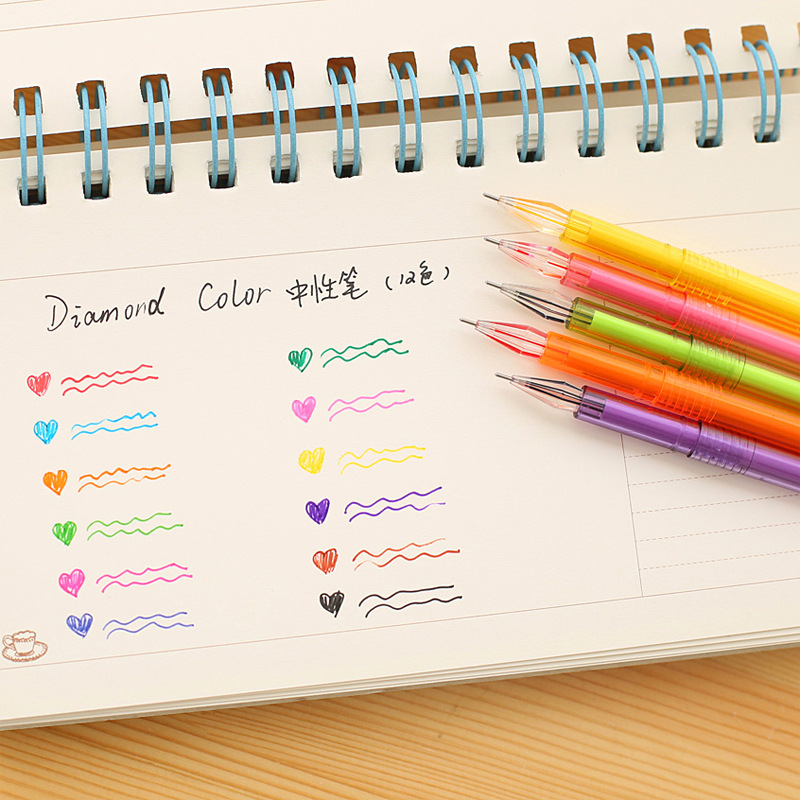 Diamond Color 中性笔（12色）